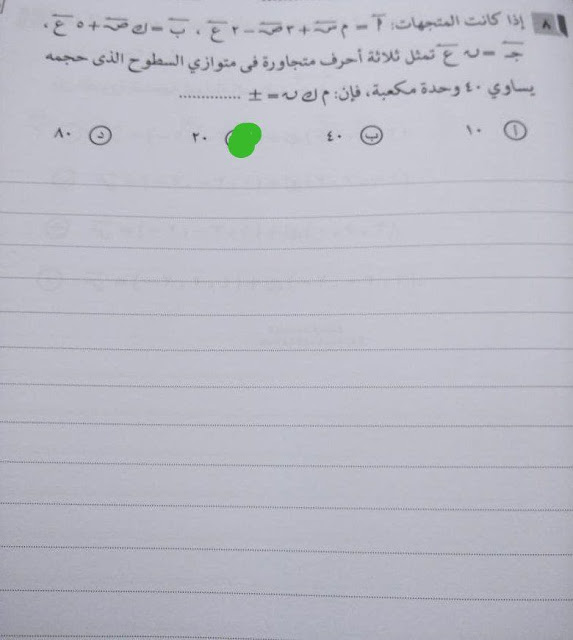 ٨ إذا كانت المتجهات: أ = م س + ٣ ص − ٢ ع ، ب = ك ص + ٥ ع ،
جـ = ن ع تمثل ثلاثة أحرف متجاورة فى متوازي السطوح الذى حجمه
يساوي ٤٠ وحدة مكعبة، فإن: م ك ن = ± ..............
أ ١٠ ب ٤٠ ٢٠ د ٨٠